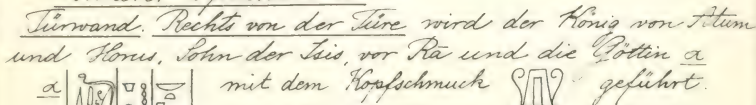 Türwand. Rechts von der Türe wird der König von Atum
und Horus, Sohn der Isis, vor Rā und die Göttin a
a mit dem Kopfschmuck geführt.